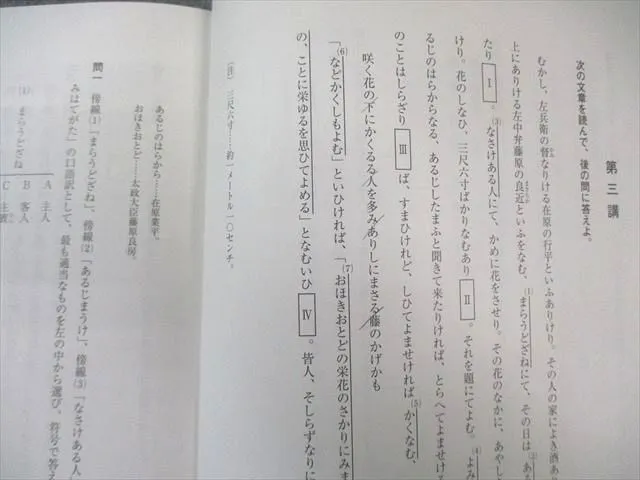 第三講
次の文章を読んで、後の問に答えよ。
むかし、左兵衛の督なりける在原の行平といふありけり。その人の家によき酒あり
上にありける左中弁藤原の良近といふをなむ、(1)まらうどざねにて、その日は(2)ある
たり Ⅰ 。(3)なさけある人にて、かめに花をさせり。その花のなかに、あやし
けり。花のしなひ、三尺六寸ばかりなむあり Ⅱ 。それを題にてよむ。(4)よみ
るじのはらからなる、あるじしたまふと聞きて来たりければ、とらへてよませける
のことはしらざり Ⅲ ば、すまひけれど、しひてよませければ(5)かくなむ、
咲く花の下にかくるる人を多みありしにまさる藤のかげかも
(6)「などかくしもよむ」といひければ、(7)「おほきおとどの栄花のさかりにみま
の、ことに栄ゆるを思ひてよめる」となむいひ Ⅳ 。皆人、そしらずなりに
(注) 三尺六寸……約一メートル一〇センチ。
あるじのはらから……在原業平。
おほきおとど……太政大臣藤原良房。
問一 傍線(1)「まらうどざね」、傍線(2)「あるじまうけ」、傍線(3)「なさけある人
みはてがた」の口語訳として、最も適当なものを左の中から選び、符号で答え
(1) まらうどざね
A 主人
B 客人
C 主賓